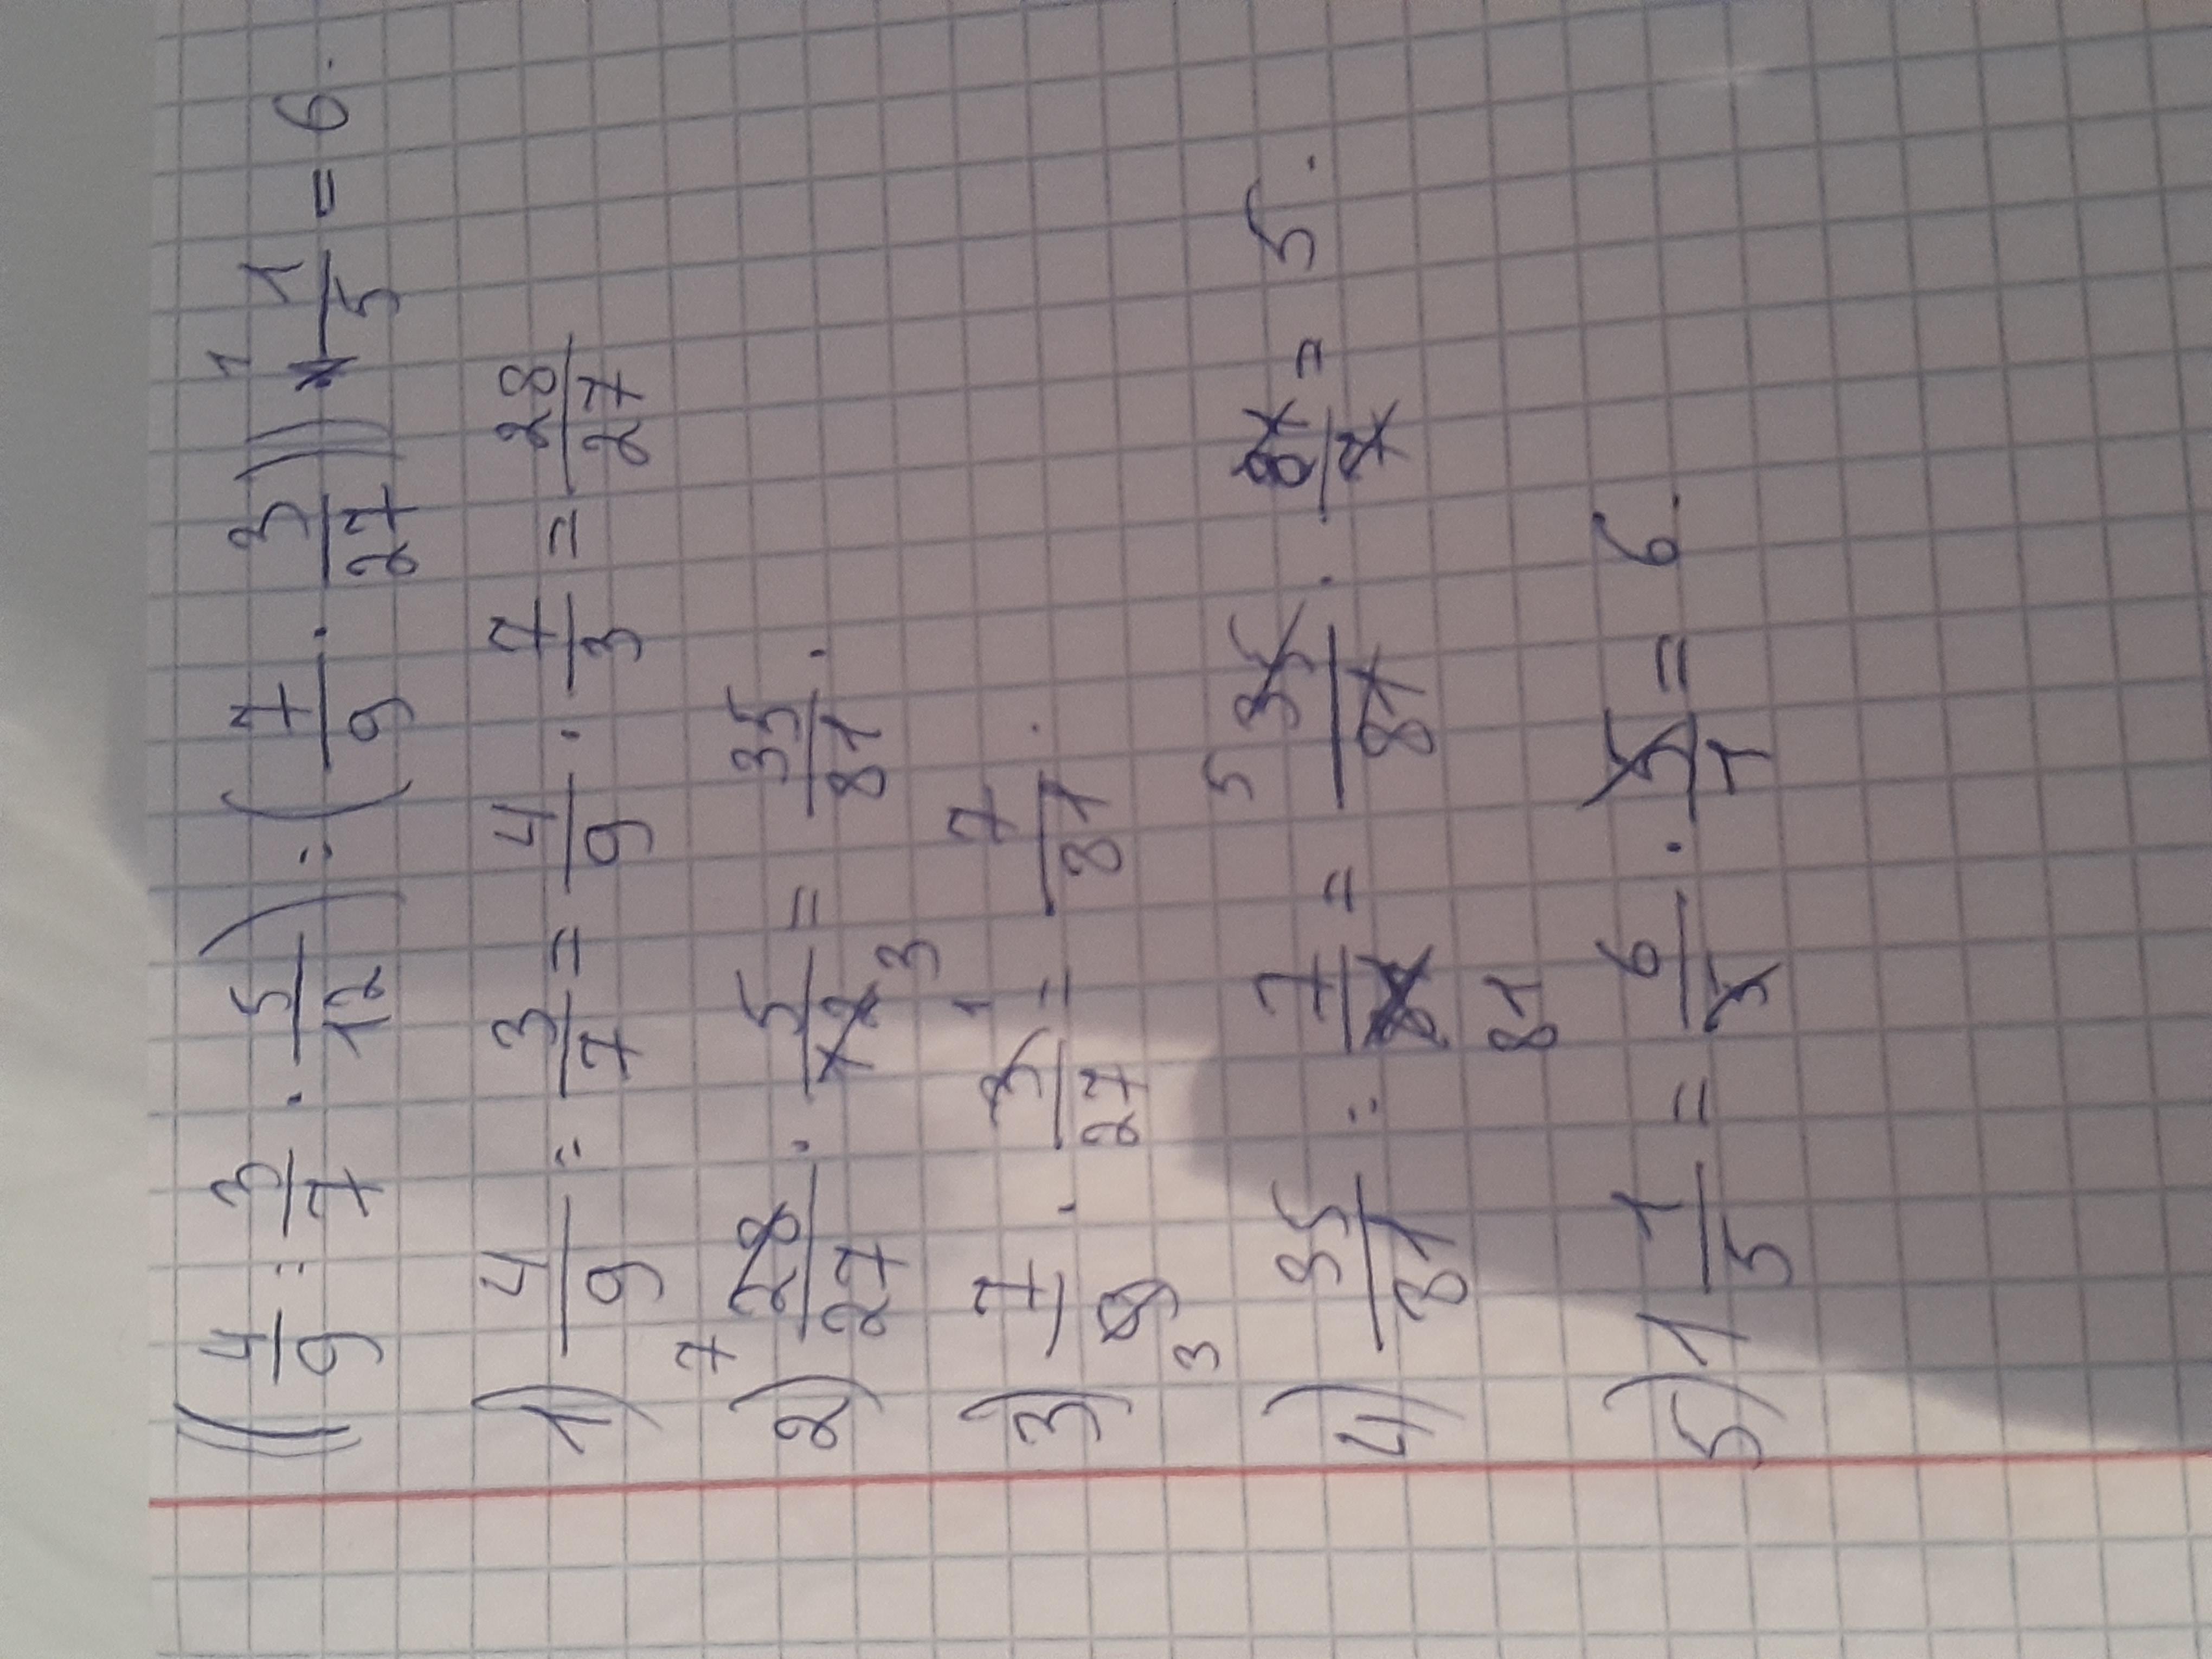 ((4/9 : 3/7 · 5/12) : (7/9 · 3/27)) · 1 1/5 = 6.
1) 4/9 : 3/7 = 4/9 · 7/3 = 28/27
2) 7 28/27 · 5/12 3 = 35/81.
3) 7/9 3 · 3/27 1 = 7/81.
4) 35/81 : 7/81 = 5 35/81 · 81/7 = 5.
5) 1 1/5 = 6/5 · 5/1 = 6.